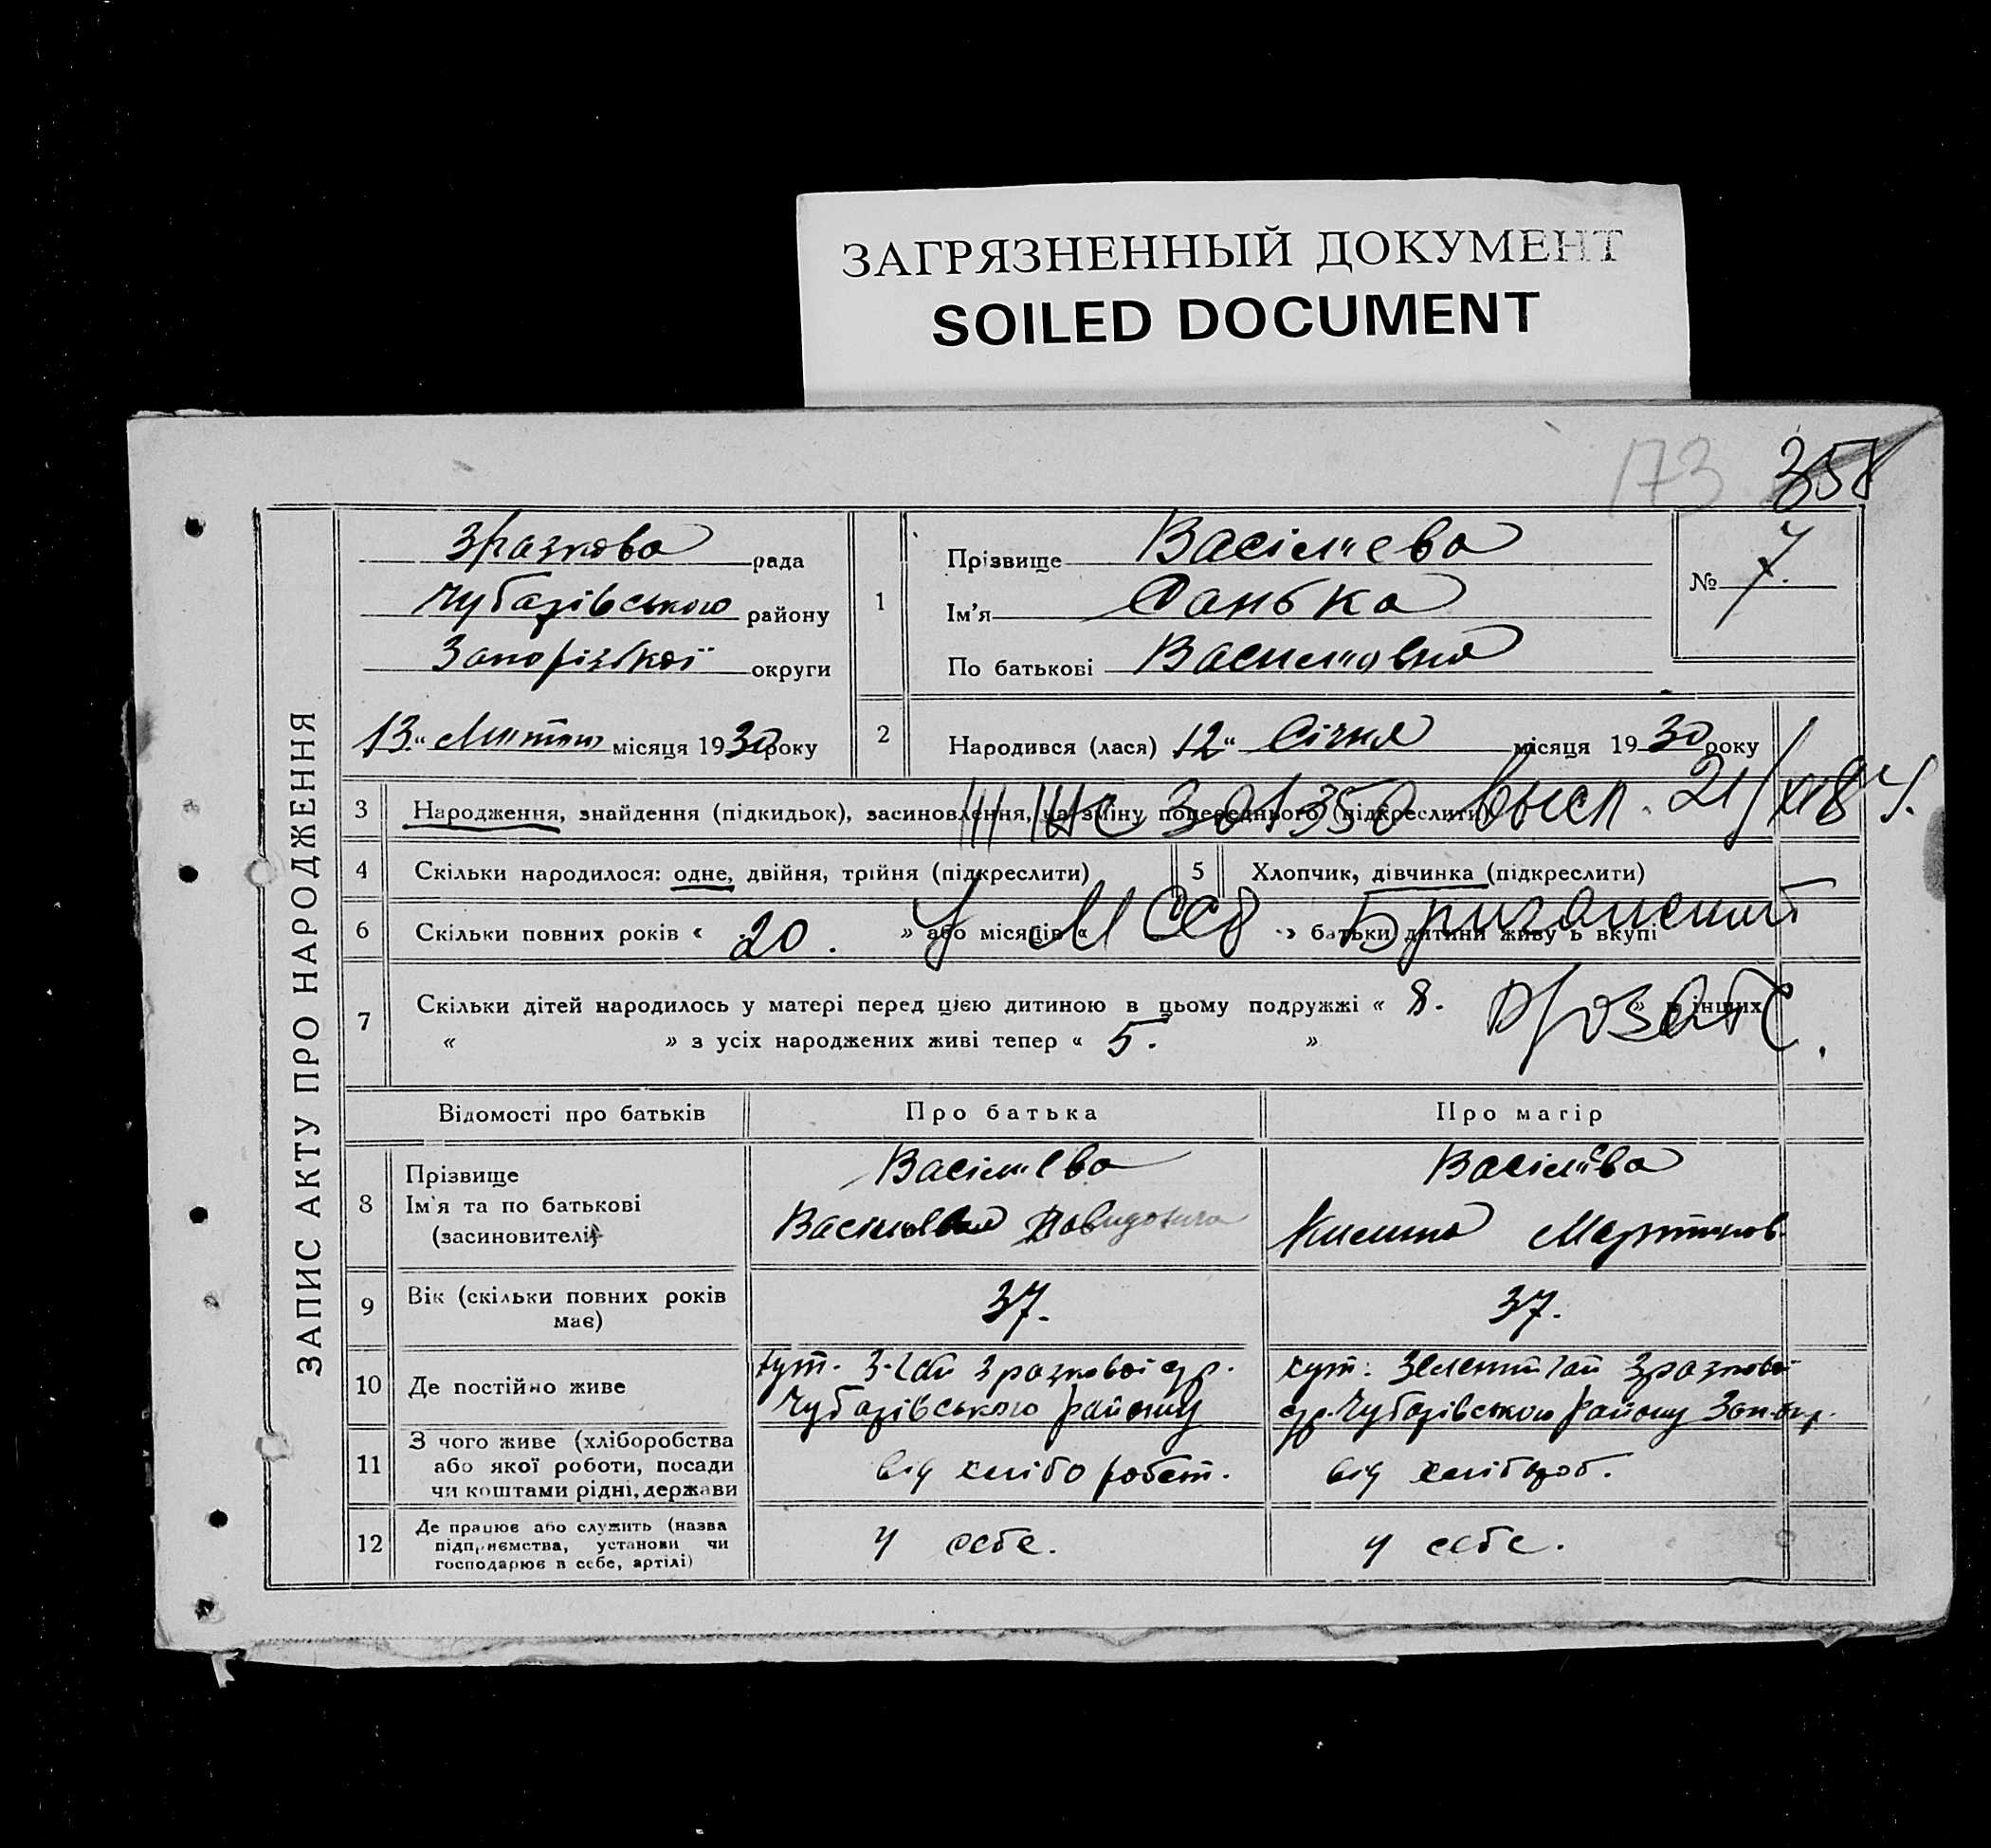 ЗАГРЯЗНЕННЫЙ ДОКУМЕНТ
SOILED DOCUMENT
173 358
ЗАПИС АКТУ ПРО НАРОДЖЕННЯ
Зразкова рада
Чубарівського району
Запорізької округи
13 "Лютого місяця 1930 року
1
Прізвище Васілієва
Ім'я Санька
По батькові Василловня
№ 7.
2 Народився (лася) 12 " Січня місяця 1930 року
3 Народження, знайдення (підкидьок), засиновлення, на зміну попереднього (підкреслити)
301350 21/XII 84.
4 Скільки народилося: одне, двійня, трійня (підкреслити)
5 Хлопчик, дівчинка (підкреслити)
6 Скільки повних років « 20. » або місяців « » батьки дитини живуть вкупі
7 Скільки дітей народилось у матері перед цією дитиною в цьому подружжі « 8. » в інших
« » з усіх народжених живі тепер « 5. »
Відомості про батьків Про батька Про матір
8 Прізвище
Ім'я та по батькові
(засновителі)
Васілієва
Давидовича
Васілієва
Мартинов.
9 Вік (скільки повних років
має)
37.
37.
10 Де постійно живе
хут. З-Гай Зразкової с/р.
Чубарівського району
хут. Зелений Гай Зразкової
с/р. Чубарівського Району Зап. окр.
11 З чого живе (хліборобства
або якої роботи, посади
чи коштами рідні, держави
від хліборобст.
від хлібороб.
12 Де працює або служить (назва
підприємства, установи чи
господарює в себе, артілі)
у себе.
у себе.